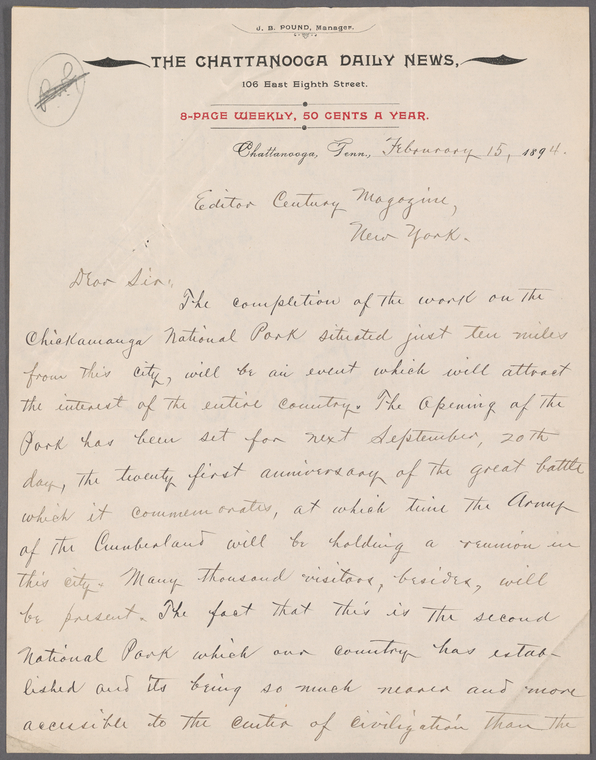 J. B. POUND, Manager.
THE CHATTANOOGA DAILY NEWS,
106 East Eighth Street.
8-PAGE WEEKLY, 50 CENTS A YEAR.
Chattanooga, Tenn., February 15, 1894.
Editor Century Magazine,
New York.
Dear Sir:
The completion of the work on the
Chickamauga National Park situated just ten miles
from this city, will be an event which will attract
the interest of the entire country. The Opening of the
Park has been set for next September, 20th
day, the twenty first anniversary of the great battle
which it commemorates, at which time the Army
of the Cumberland will be holding a reunion in
this city. Many thousand visitors, besides, will
be present. The fact that this is the second
National Park which our country has estab-
lished and its being so much nearer and more
accessible to the center of civilization than the